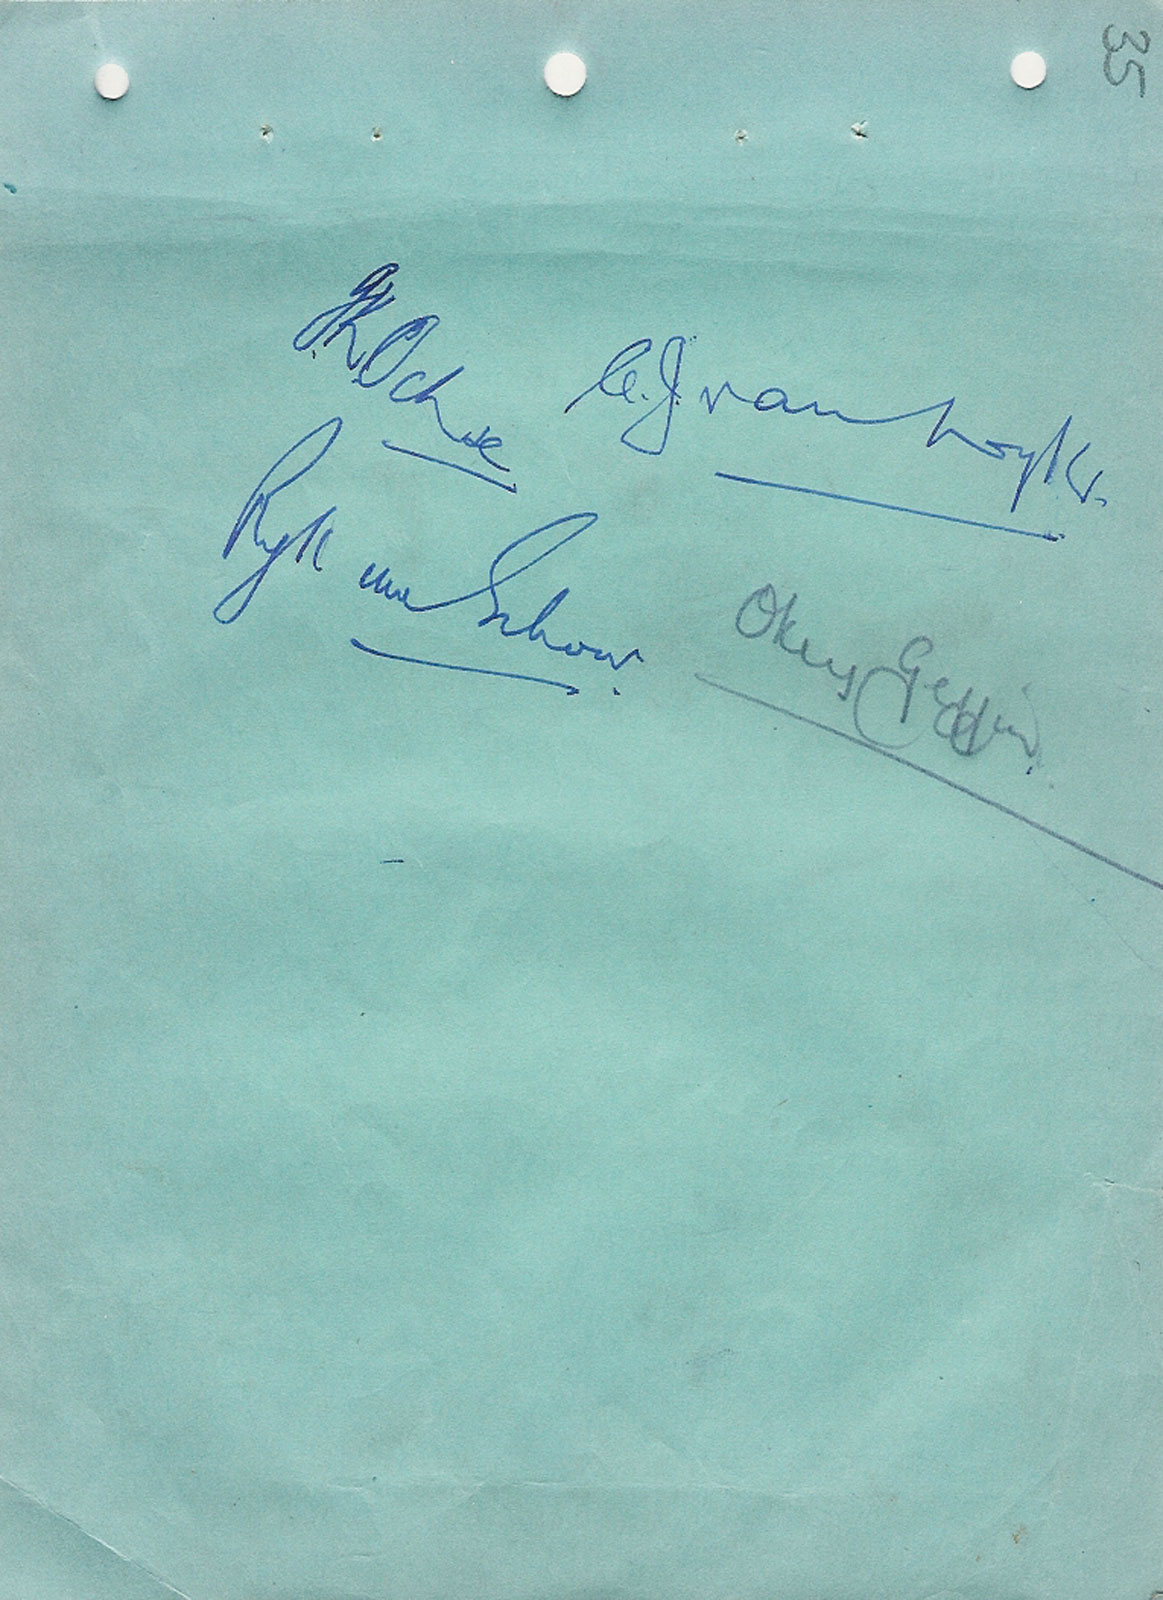 35
J.K. Ochse
C.J. van Wyk.
Ryk van Schoor.
Okey Geffin.